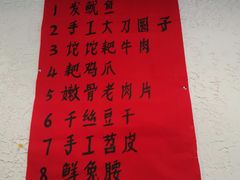 1 发鱿鱼
2 手工大刀圆子
3 饳饳粑牛肉
4 耙鸡爪
5 嫩骨老肉片
6 千丝豆干
7 手工苕皮
8 鲜兔腰